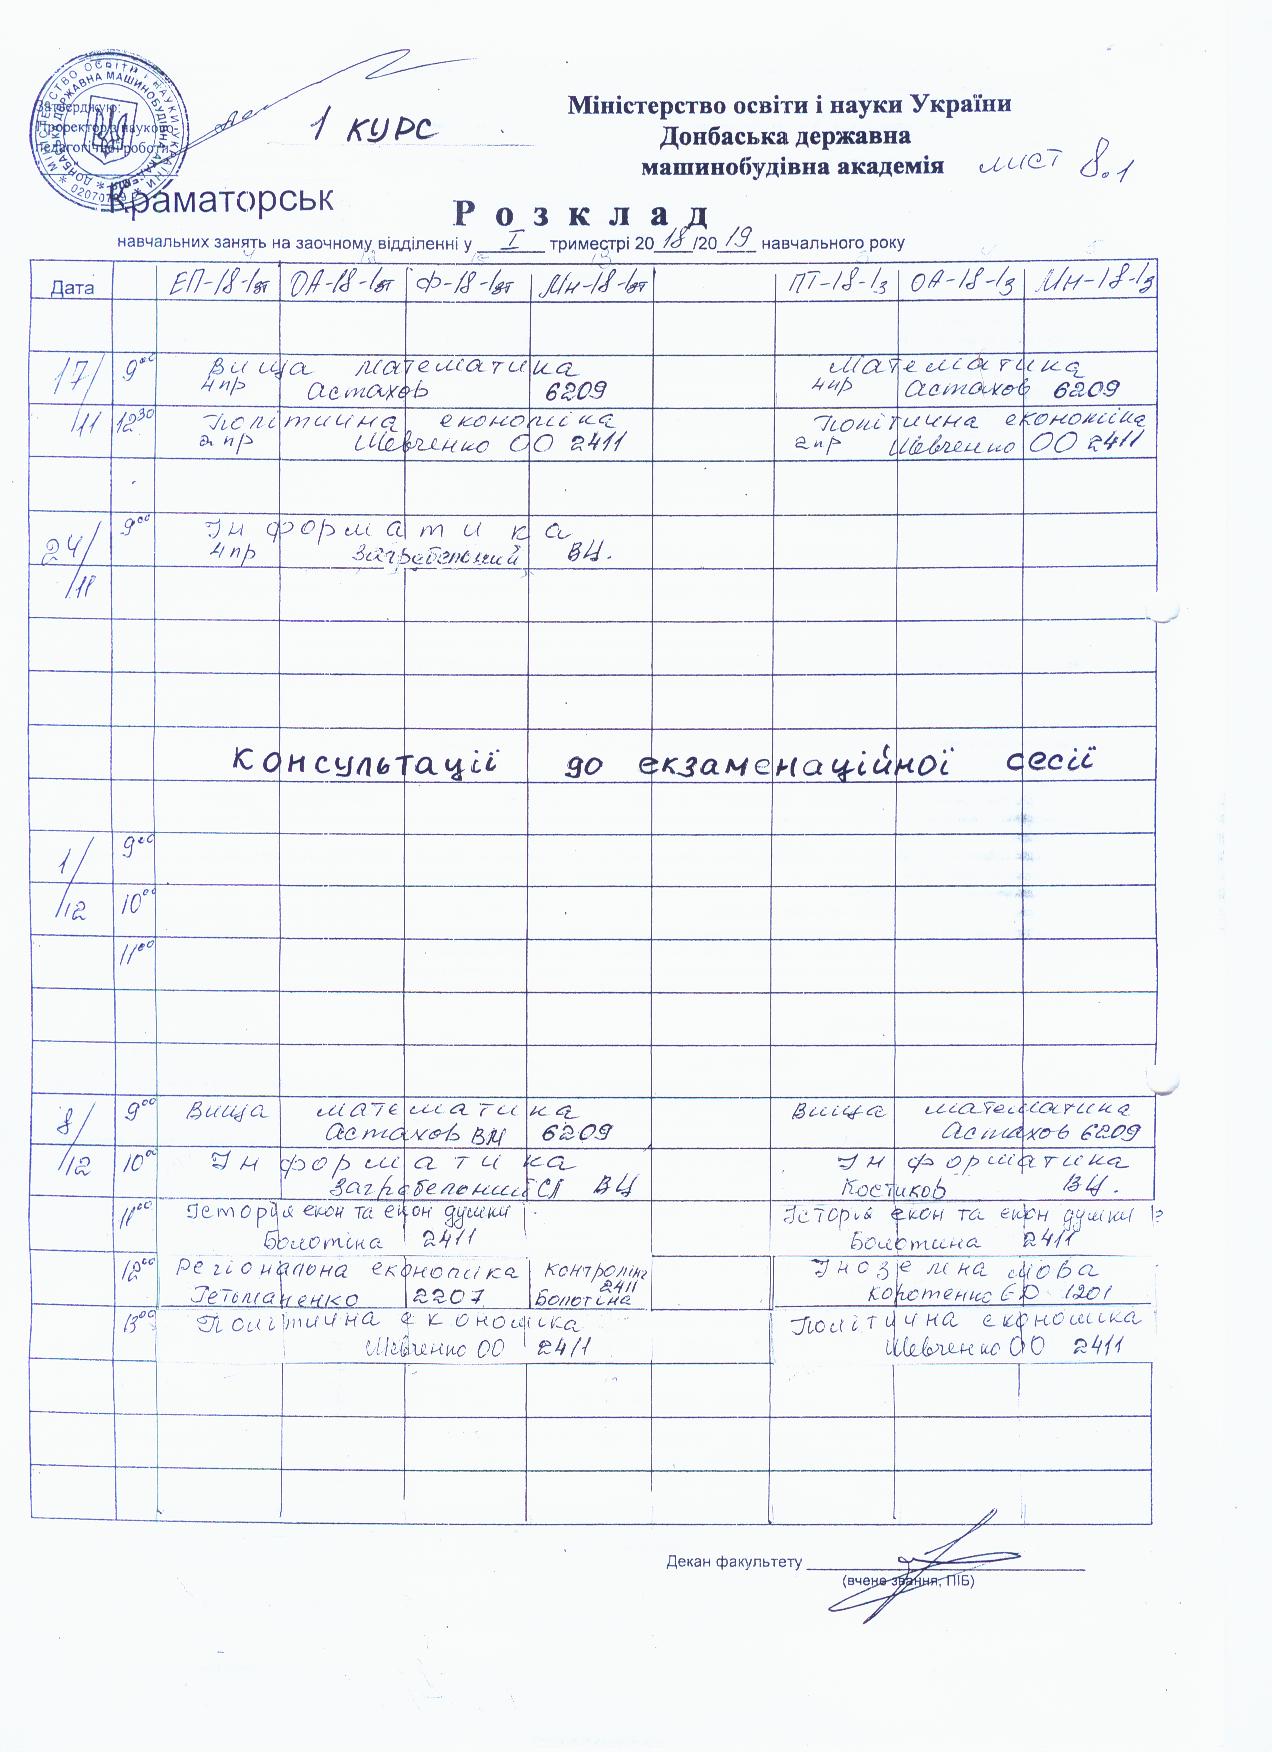 Затверджую:
Проректор з науково-
педагогічної роботи
МІНІСТЕРСТВО ОСВІТИ І НАУКИ УКРАЇНИ
ДОНБАСЬКА ДЕРЖАВНА МАШИНОБУДІВНА АКАДЕМІЯ
02070789
1 курс
Міністерство освіти і науки України
Донбаська державна
машинобудівна академія
лист 8.1
Краматорськ
Розклад
навчальних занять на заочному відділенні у I триместрі 2018/2019 навчального року
Дата ЕП-18-1вт ОА-18-1вт Ф-18-1вт Мн-18-1вт ПТ-18-1з ОА-18-1з Мн-18-1з
17/11 9⁰⁰ Вища математика Математика
4 пр Астахов 6209 4 пр Астахов 6209
12³⁰ Політична економіка Політична економіка
2 пр Шевченко ОО 2411 2 пр Шевченко ОО 2411
24/11 9⁰⁰ Інформатика
4 пр Загребельний ВЦ.
Консультації до екзаменаційної сесії
1/12 9⁰⁰
10⁰⁰
11⁰⁰
8/12 9⁰⁰ Вища математика Вища математика
Астахов ВМ 6209 Астахов 6209
10⁰⁰ Інформатика Інформатика
Загребельний СЛ ВЦ Костиков ВЦ.
11⁰⁰ Історія екон та екон думки Історія екон та екон думки
Болотіна 2411 Болотина 2411
12⁰⁰ Регіональна економіка Контролінг Іноземна мова
Гетьманенко 2207 2411 Болотіна Коротенко ЄД 1201
13⁰⁰ Політична економіка Політична економіка
Шевченко ОО 2411 Шевченко ОО 2411
Декан факультету
(вчене звання, ПІБ)